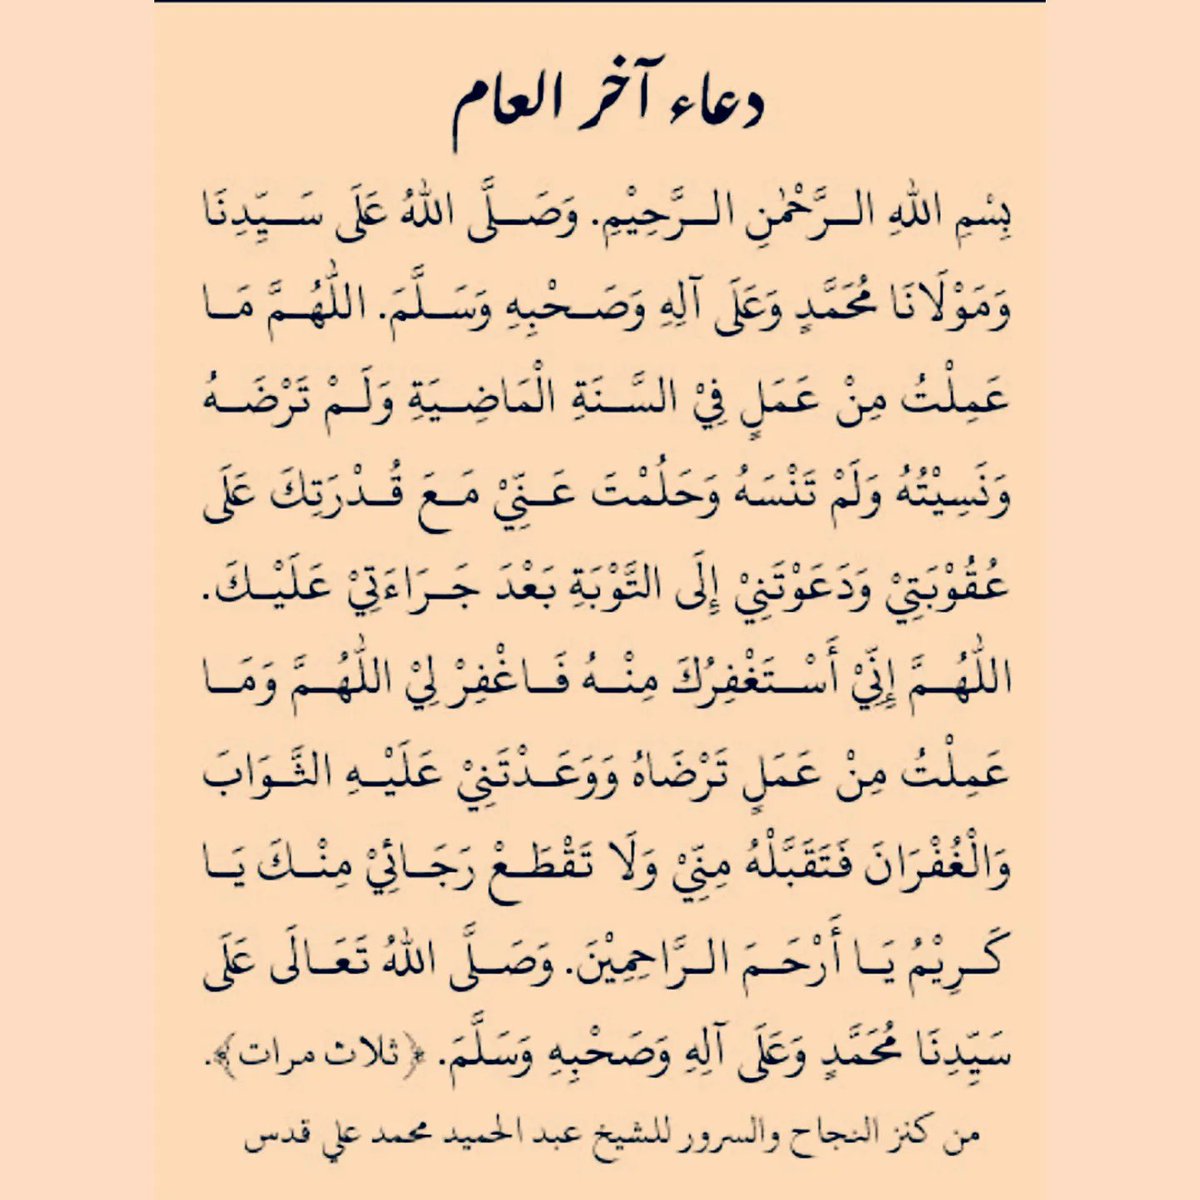 دعاء آخر العام
بِسْمِ اللهِ الـرَّحْمٰنِ الـرَّحِيْمِ. وَصَـلَّى اللهُ عَلَى سَـيِّدِنَا
وَمَوْلَانَا مُحَمَّدٍ وَعَلَى آلِهِ وَصَـحْبِهِ وَسَـلَّمَ. اللّٰهُـمَّ مَـا
عَمِلْتُ مِنْ عَمَلٍ فِيْ السَّـنَةِ الْمَاضِـيَةِ وَلَـمْ تَرْضَـهُ
وَنَسِيْتُهُ وَلَمْ تَنْسَهُ وَحَلُمْتَ عَـنِّيْ مَـعَ قُـدْرَتِكَ عَلَى
عُقُوْبَتِيْ وَدَعَوْتَنِيْ إِلَى التَّوْبَةِ بَعْدَ جَـرَاءَتِيْ عَلَيْـكَ.
اللّٰهُـمَّ إِنِّيْ أَسْـتَغْفِرُكَ مِنْـهُ فَـاغْفِرْ لِيْ اللّٰهُـمَّ وَمَـا
عَمِلْتُ مِنْ عَمَلٍ تَرْضَاهُ وَوَعَـدْتَنِيْ عَلَيْـهِ الثَّـوَابَ
وَالْغُفْرَانَ فَتَقَبَّلْهُ مِنِّيْ وَلَا تَقْطَـعْ رَجَـائِيْ مِنْـكَ يَـا
كَـرِيْمُ يَـا أَرْحَـمَ الـرَّاحِمِيْنَ. وَصَـلَّى اللهُ تَعَـالَى عَلَى
سَيِّدِنَا مُحَمَّدٍ وَعَلَى آلِهِ وَصَحْبِهِ وَسَلَّمَ. ﴿ثلاث مرات﴾.
من كنز النجاح والسرور للشيخ عبد الحميد محمد علي قدس